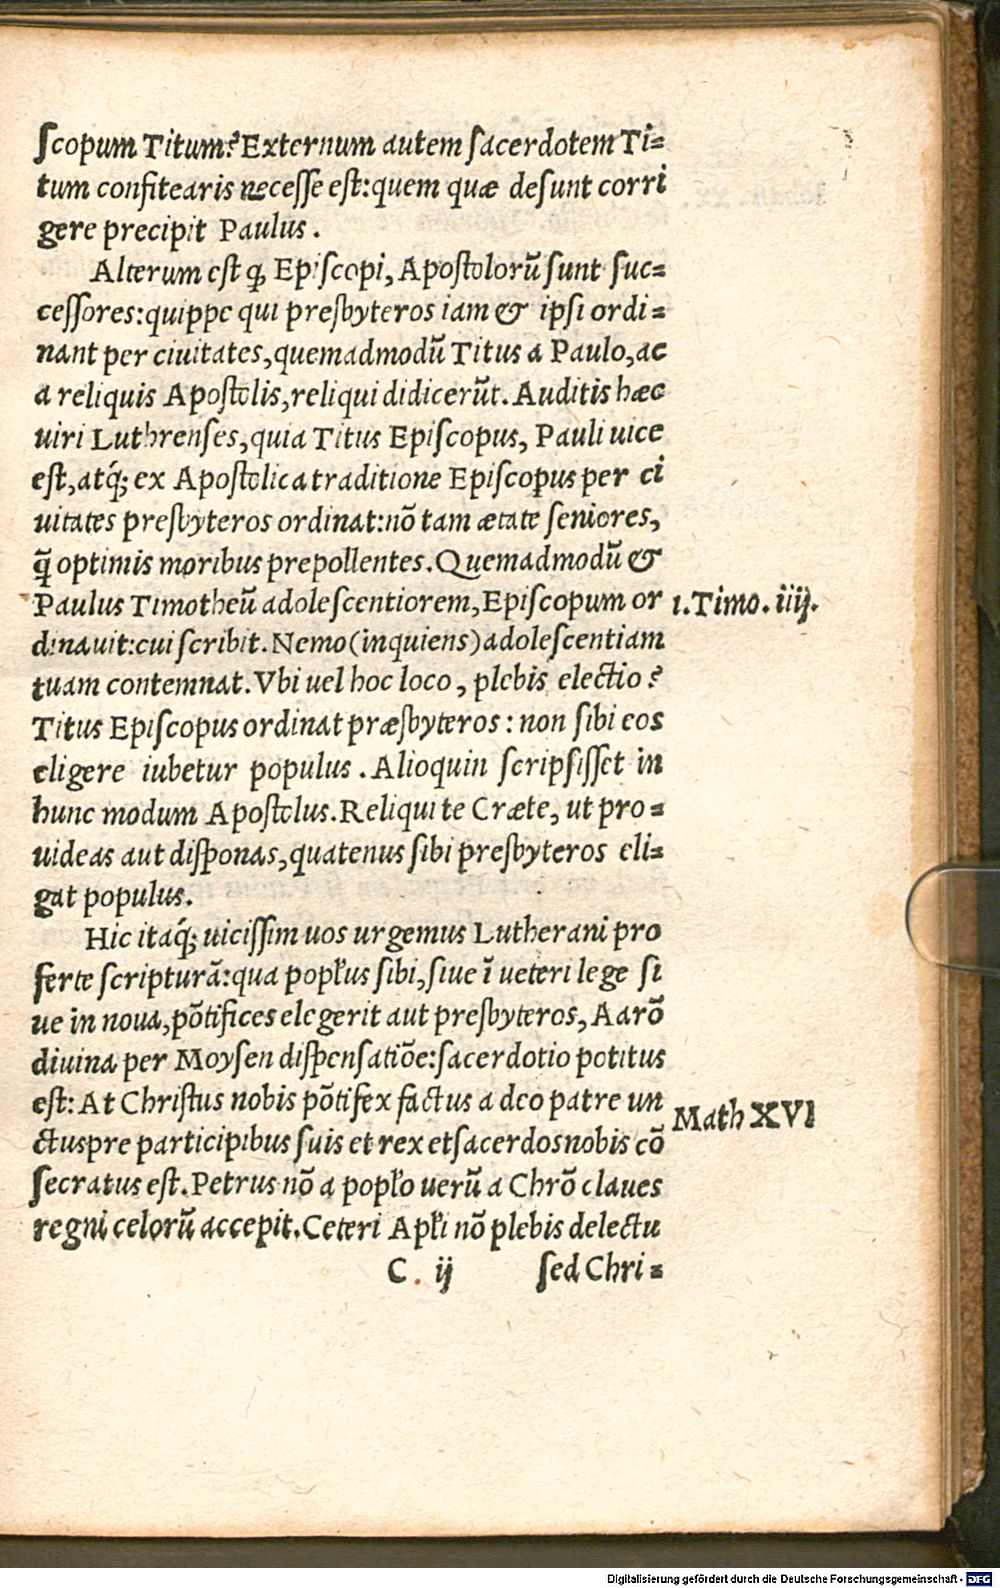 ſcopum Titum? Externum autem ſacerdotem Ti=
tum confitearis neceſſe eſt: quem quæ deſunt corri
gere precipit Paulus.
Alterum eſt ꝙ Epiſcopi, Apoſtolorũ ſunt ſuc=
ceſſores: quippe qui preſbyteros iam & ipſi ordi=
nant per ciuitates, quemadmodũ Titus a Paulo, ac
a reliquis Apoſtolis, reliqui didicerũt. Auditis hæc
uiri Luthrenſes, quia Titus Epiſcopus, Pauli uice
eſt, atq́; ex Apoſtolica traditione Epiſcopus per ci
uitates preſbyteros ordinat: nõ tam ætate ſeniores,
q̃ optimis moribus prepollentes. Quemadmodũ &
Paulus Timotheũ adoleſcentiorem, Epiſcopum or
dinauit: cui ſcribit. Nemo (inquiens) adoleſcentiam
tuam contemnat. Vbi uel hoc loco, plebis electio?
Titus Epiſcopus ordinat præſbyteros: non ſibi eos
eligere iubetur populus. Alioquin ſcripſiſſet in
hunc modum Apoſtolus. Reliqui te Cræte, ut pro=
uideas aut diſponas, quatenus ſibi preſbyteros eli=
gat populus.
Hic itaq́; uiciſſim uos urgemus Lutherani pro
ferte ſcripturã: qua popl̓us ſibi, ſiue ĩ ueteri lege ſi
ue in noua, põtifices elegerit aut preſbyteros, Aarõ
diuina per Moyſen diſpenſatiõe: ſacerdotio potitus
eſt: At Chriſtus nobis põtifex factus a deo patre un
ctus pre participibus ſuis et rex et ſacerdos nobis cõ
ſecratus eſt. Petrus nõ a popl̓o uerũ a Chrõ claues
regni celorũ accepit. Ceteri Apl̓i nõ plebis delectu
C. ij ſed Chri=
1. Timo. iiij.
Math XVI
Digitalisierung gefördert durch die Deutsche Forschungsgemeinschaft - DFG